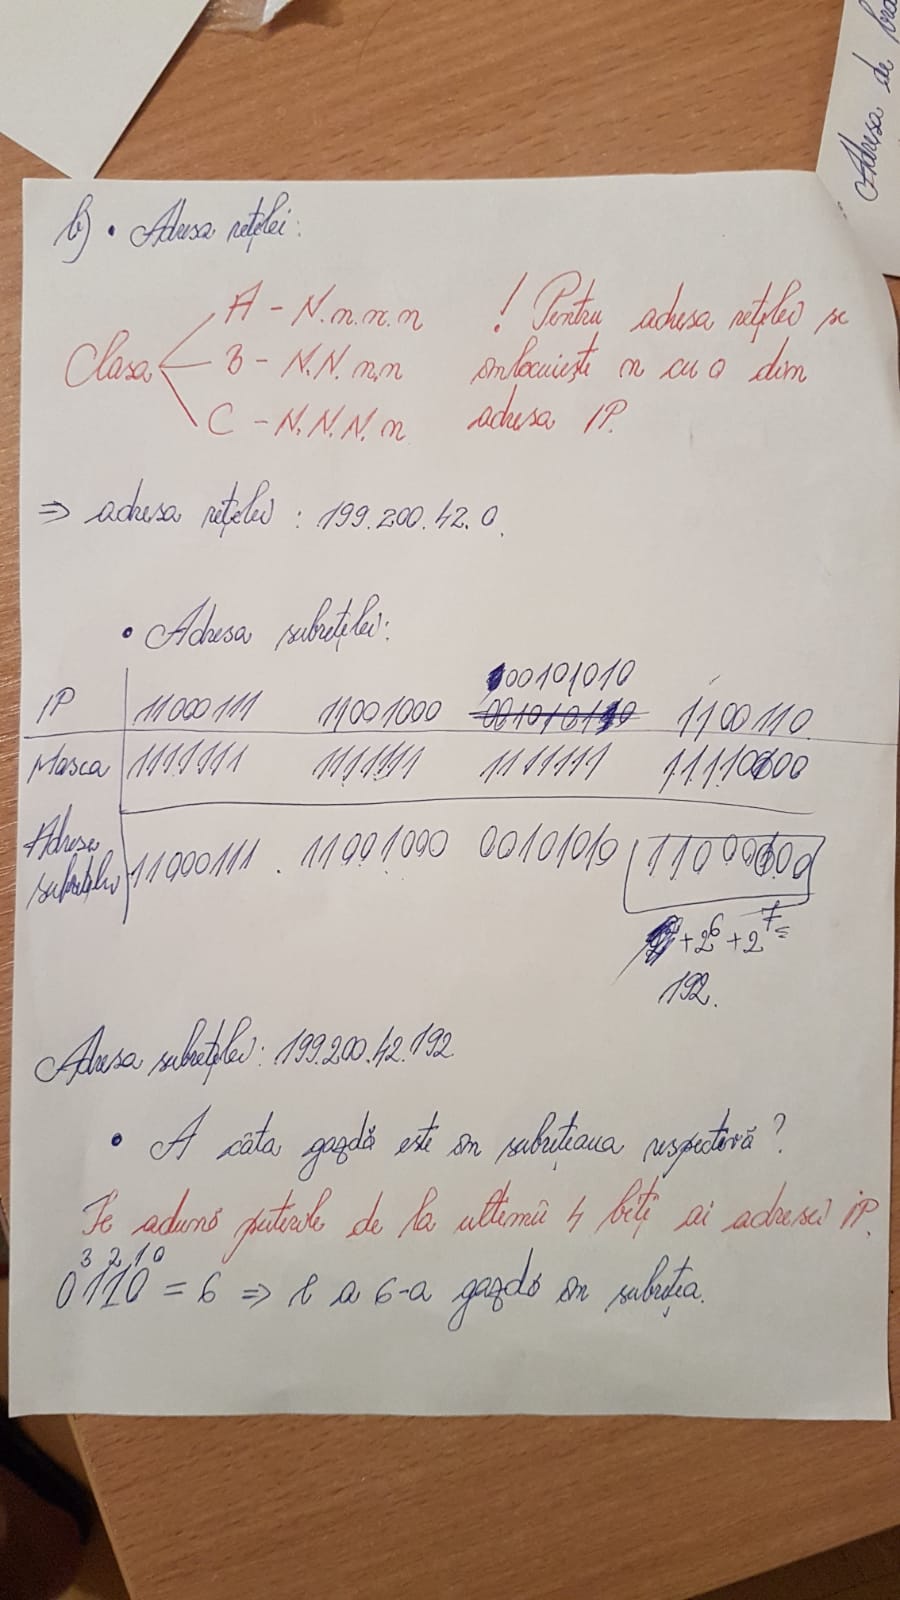 Adresa de
b) • Adresa rețelei:
Clasa
A - N.n.n.n
B - N.N.n.n
C - N.N.N.n
! Pentru adresa rețelei se
înlocuiește n cu 0 din
adresa IP.
⇒ adresa rețelei : 199.200.42.0.
• Adresa subrețelei:
00101010
IP 11000111 11001000 1100110
Masca 11111111 11111111 11111111 11110000
Adresa subrețelei 11000111 . 11001000 00101010 11000000
+ 2^6 + 2^7 =
192.
Adresa subrețelei: 199.200.42.192
• A câta gazdă este în subrețeaua respectivă?
Se adună puterile de la ultimii 4 biți ai adresei IP.
3 2 1 0
0110 = 6 ⇒ e a 6-a gazdă în subrețea.